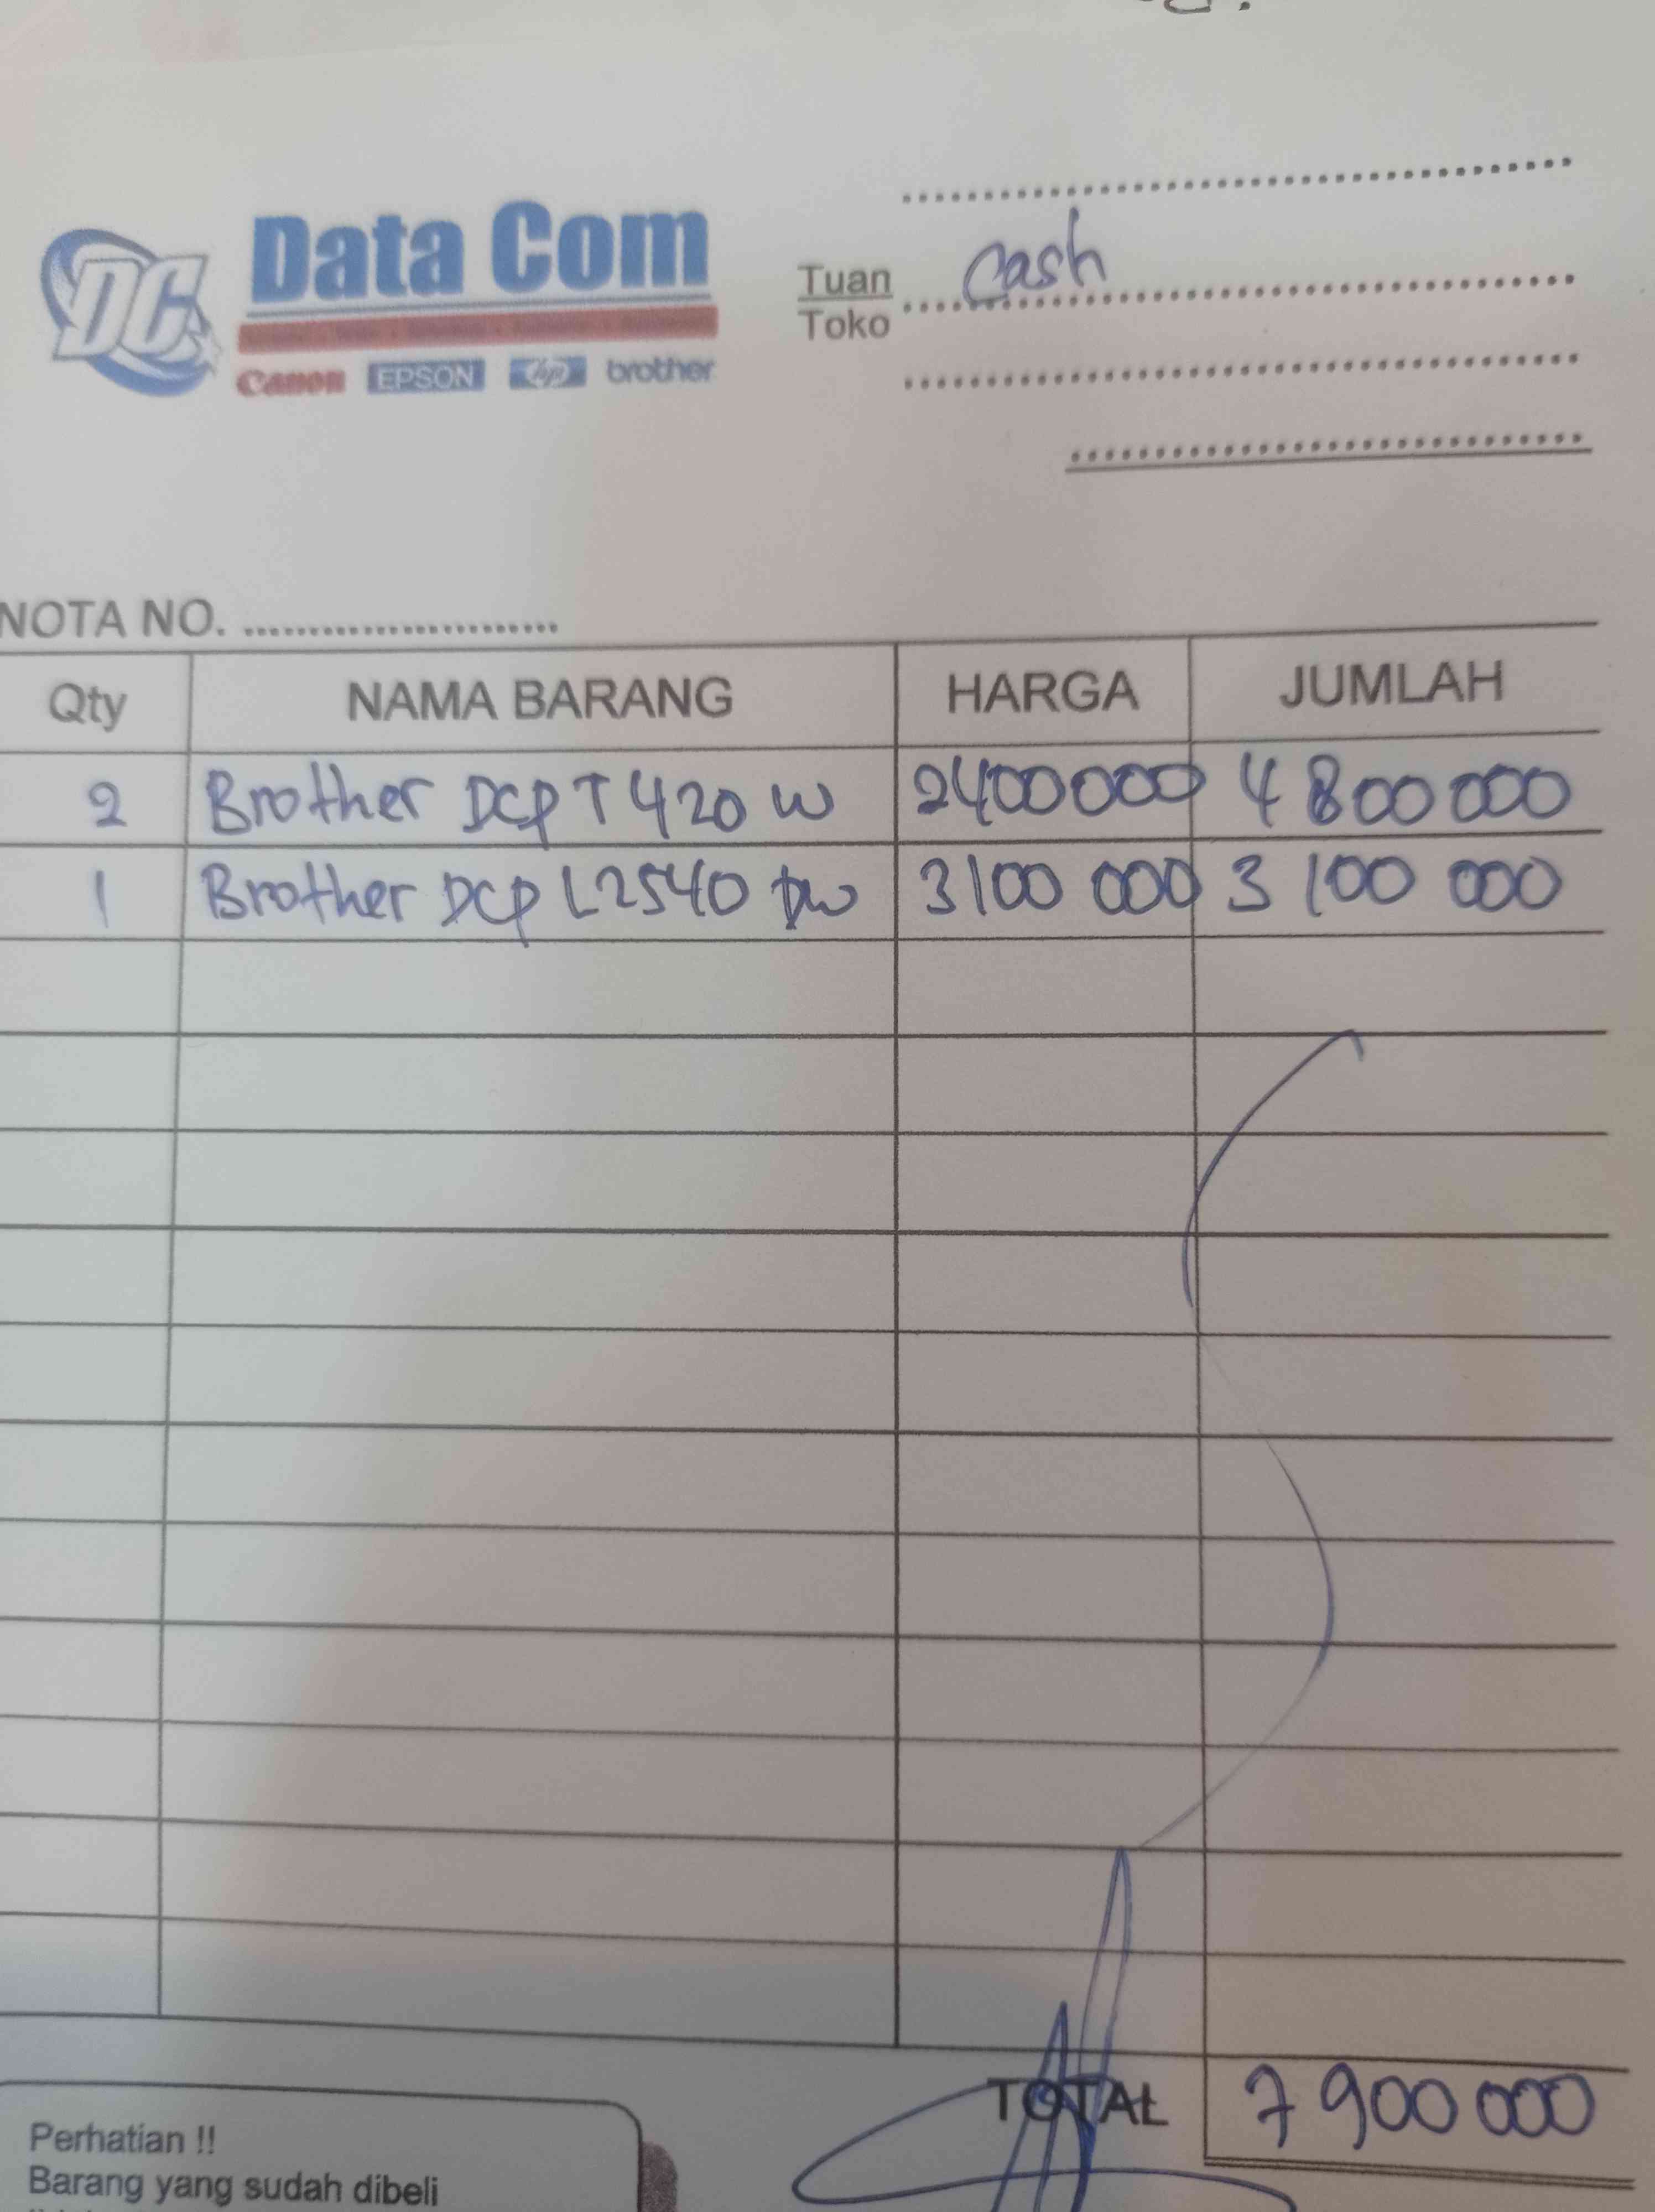 DC
Data Com
Canon EPSON hp brother
Tuan cash
Toko
NOTA NO. ........................
Qty NAMA BARANG HARGA JUMLAH
2 Brother DCP T420 W 2400000 4 800 000
1 Brother DCP L2540 DW 3100 000 3 100 000
TOTAL 7 900 000
Perhatian !!
Barang yang sudah dibeli